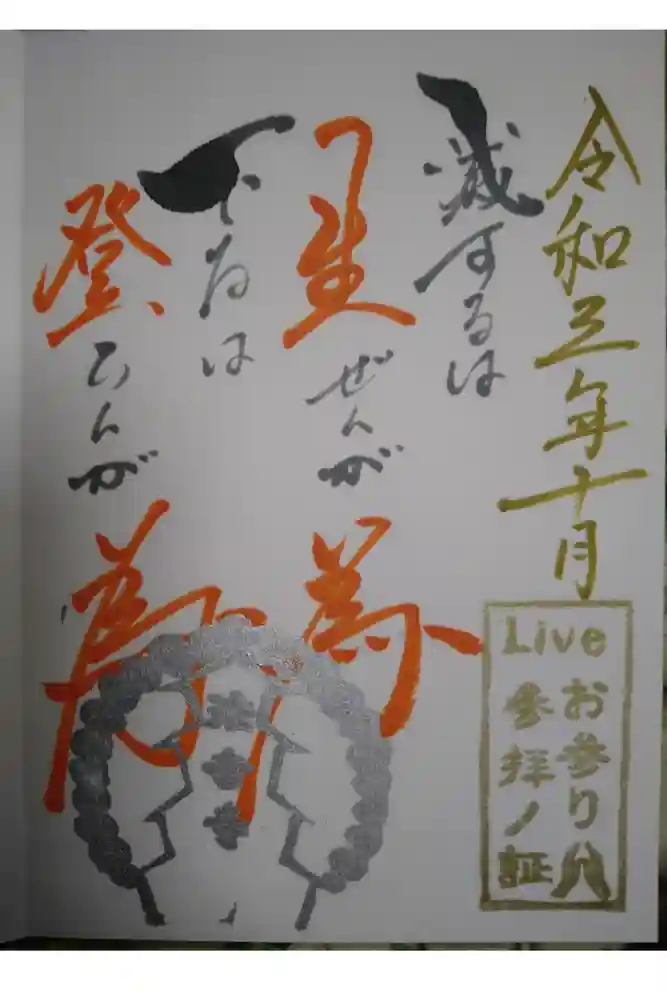 令和三年十月
滅するは
生ぜんが
為
下るは
登らんが
為
Live
お参り
参拝ノ証